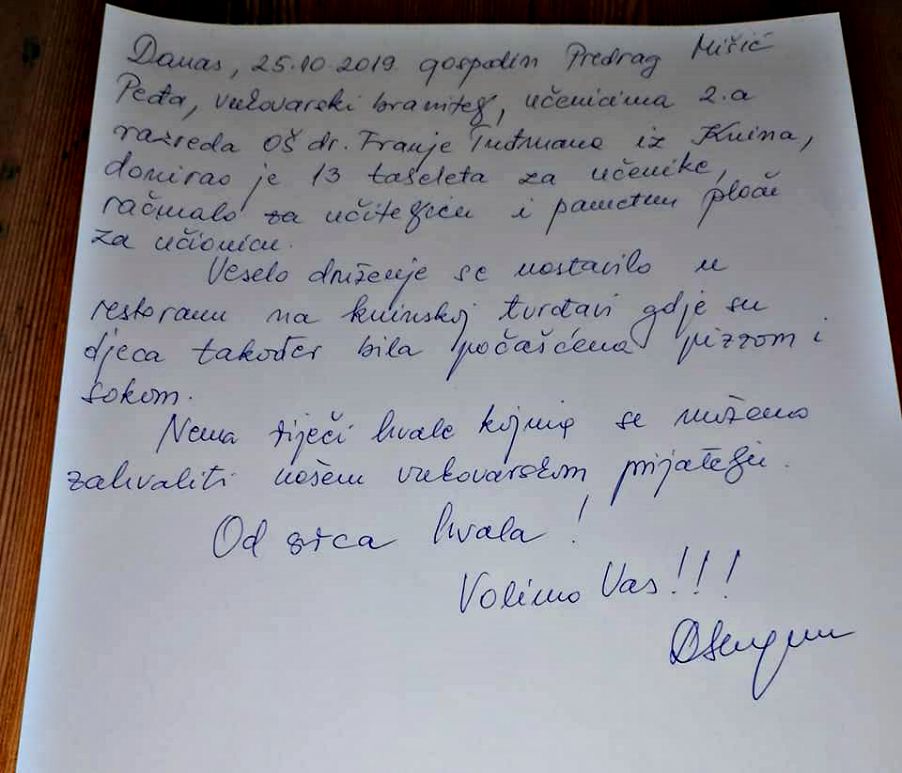 Danas, 25.10.2019. gospodin Predrag Mišić
Peđa, vukovarski branitelj, učenicima 2.a
razreda OŠ dr. Franje Tuđmana iz Knina,
donirao je 13 tableta za učenike,
računalo za učiteljicu i pametnu ploču
za učionicu.
Veselo druženje se nastavilo u
restoranu na kninskoj tvrđavi gdje su
djeca također bila počašćena pizzom i
sokom.
Nema riječi hvale kojima se možemo
zahvaliti našem vukovarskom prijatelju.
Od srca hvala!
Volimo Vas!!!